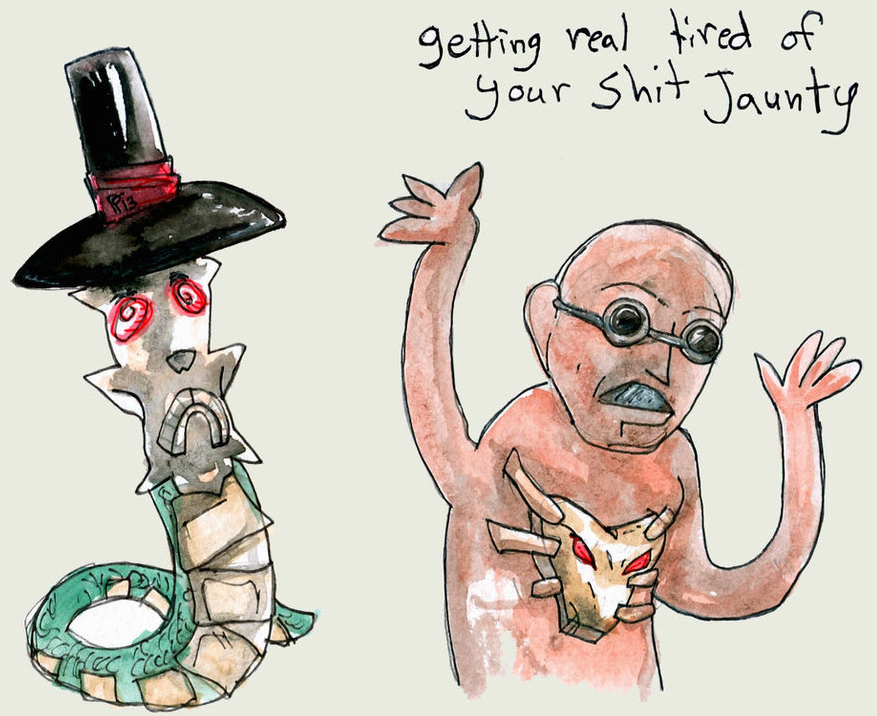 getting real tired of
your shit Jaunty